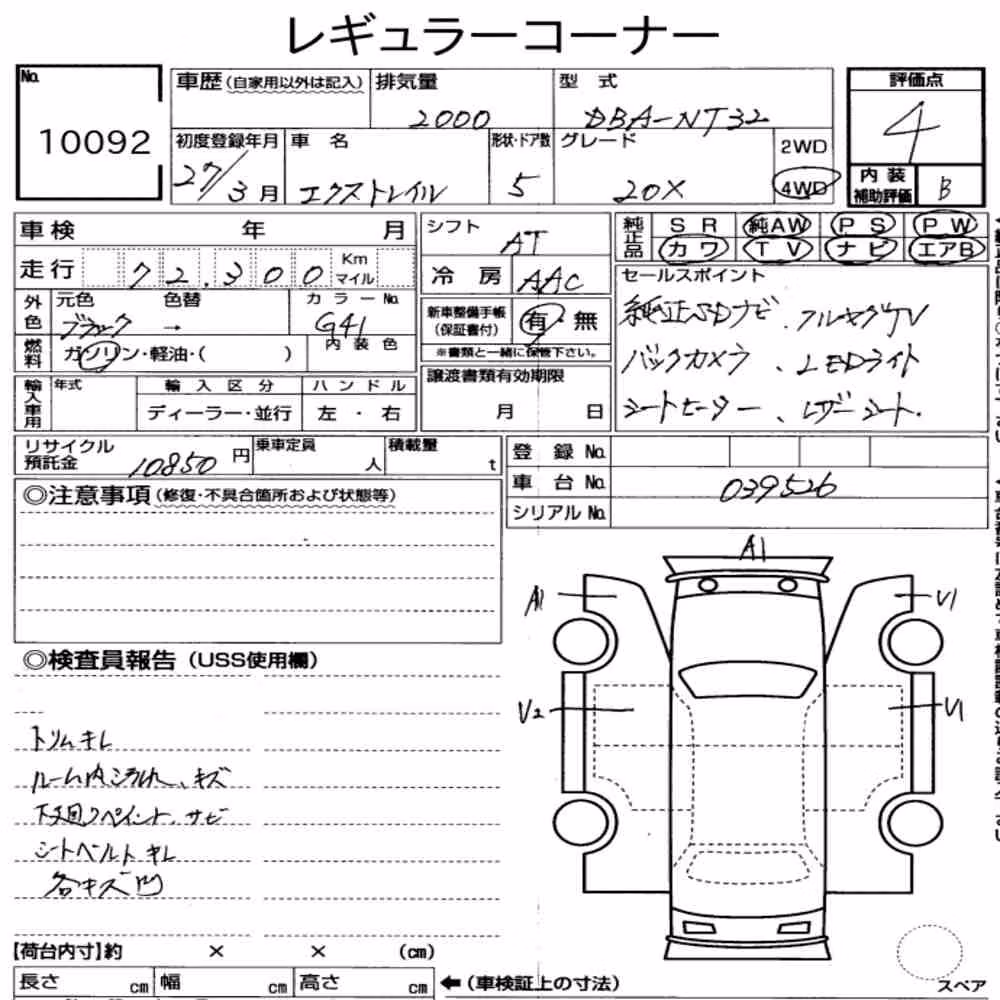 レギュラーコーナー
No.
10092
車歴 (自家用以外は記入)
排気量
2000
型 式
DBA-NT32
評価点
4
初度登録年月
27/3月
車 名
エクストレイル
形状・ドア数
5
グレード
20X
2WD
4WD
内 装
補助評価
B
車検 年 月
走行 72,300 Km
マイル
シフト
AT
冷 房 AAC
純正品
SR 純AW PS PW
カワ TV ナビ エアB
外色
元色 色替
ブラック →
カラーNo.
G41
内 装 色
燃料
ガソリン・軽油・( )
新車整備手帳
(保証書付)
有・無
※書類と一緒に保管下さい。
セールスポイント
純正SDナビ、フルセグTV
バックカメラ、LEDライト
シートヒーター、レザーシート.
輸入車用
年式
輸 入 区 分
ディーラー・並行
ハ ン ド ル
左 ・ 右
譲渡書類有効期限
月 日
リサイクル
預託金
10850 円
乗車定員
人
積載量
t
登 録 No.
車 台 No.
039526
シリアル No.
◎注意事項 (修復・不具合箇所および状態等)
◎検査員報告 (USS使用欄)
トリムキレ
ルーム内ヨゴレ、キズ
下回りペイント、サビ
シートベルトキレ
各キズ凹
A1
A1
V1
V2
V1
【荷台内寸】約 × × (cm)
長さ cm
幅 cm
高さ cm
←(車検証上の寸法)
スペア